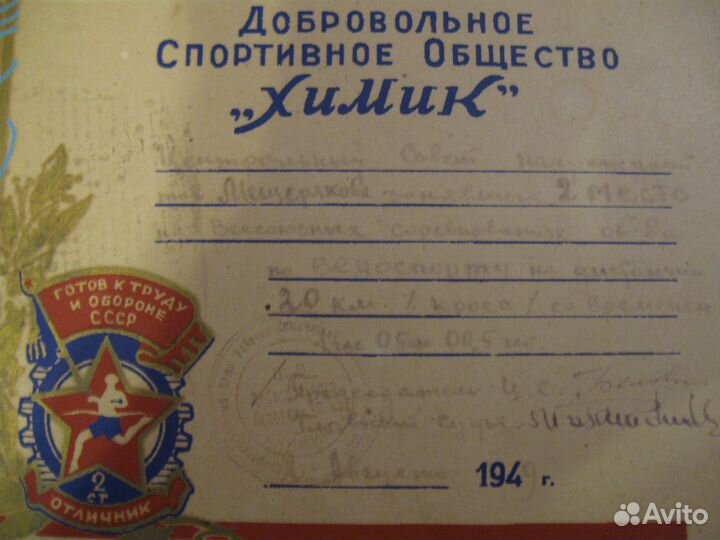 ДОБРОВОЛЬНОЕ
СПОРТИВНОЕ ОБЩЕСТВО
„ХИМИК”
Центральный Совет награждает
тов Мещерякова занявшего 2 место
на Всесоюзных соревнованиях об-ва
по Велоспорту на дистанцию
20 км. /кросс/ со временем
1 час 05м 00,5 сек.
Председатель Ц.С.
Главный судья
Августа 1949 г.
ГОТОВ К ТРУДУ
И ОБОРОНЕ
СССР
2
СТ.
ОТЛИЧНИК
Avito